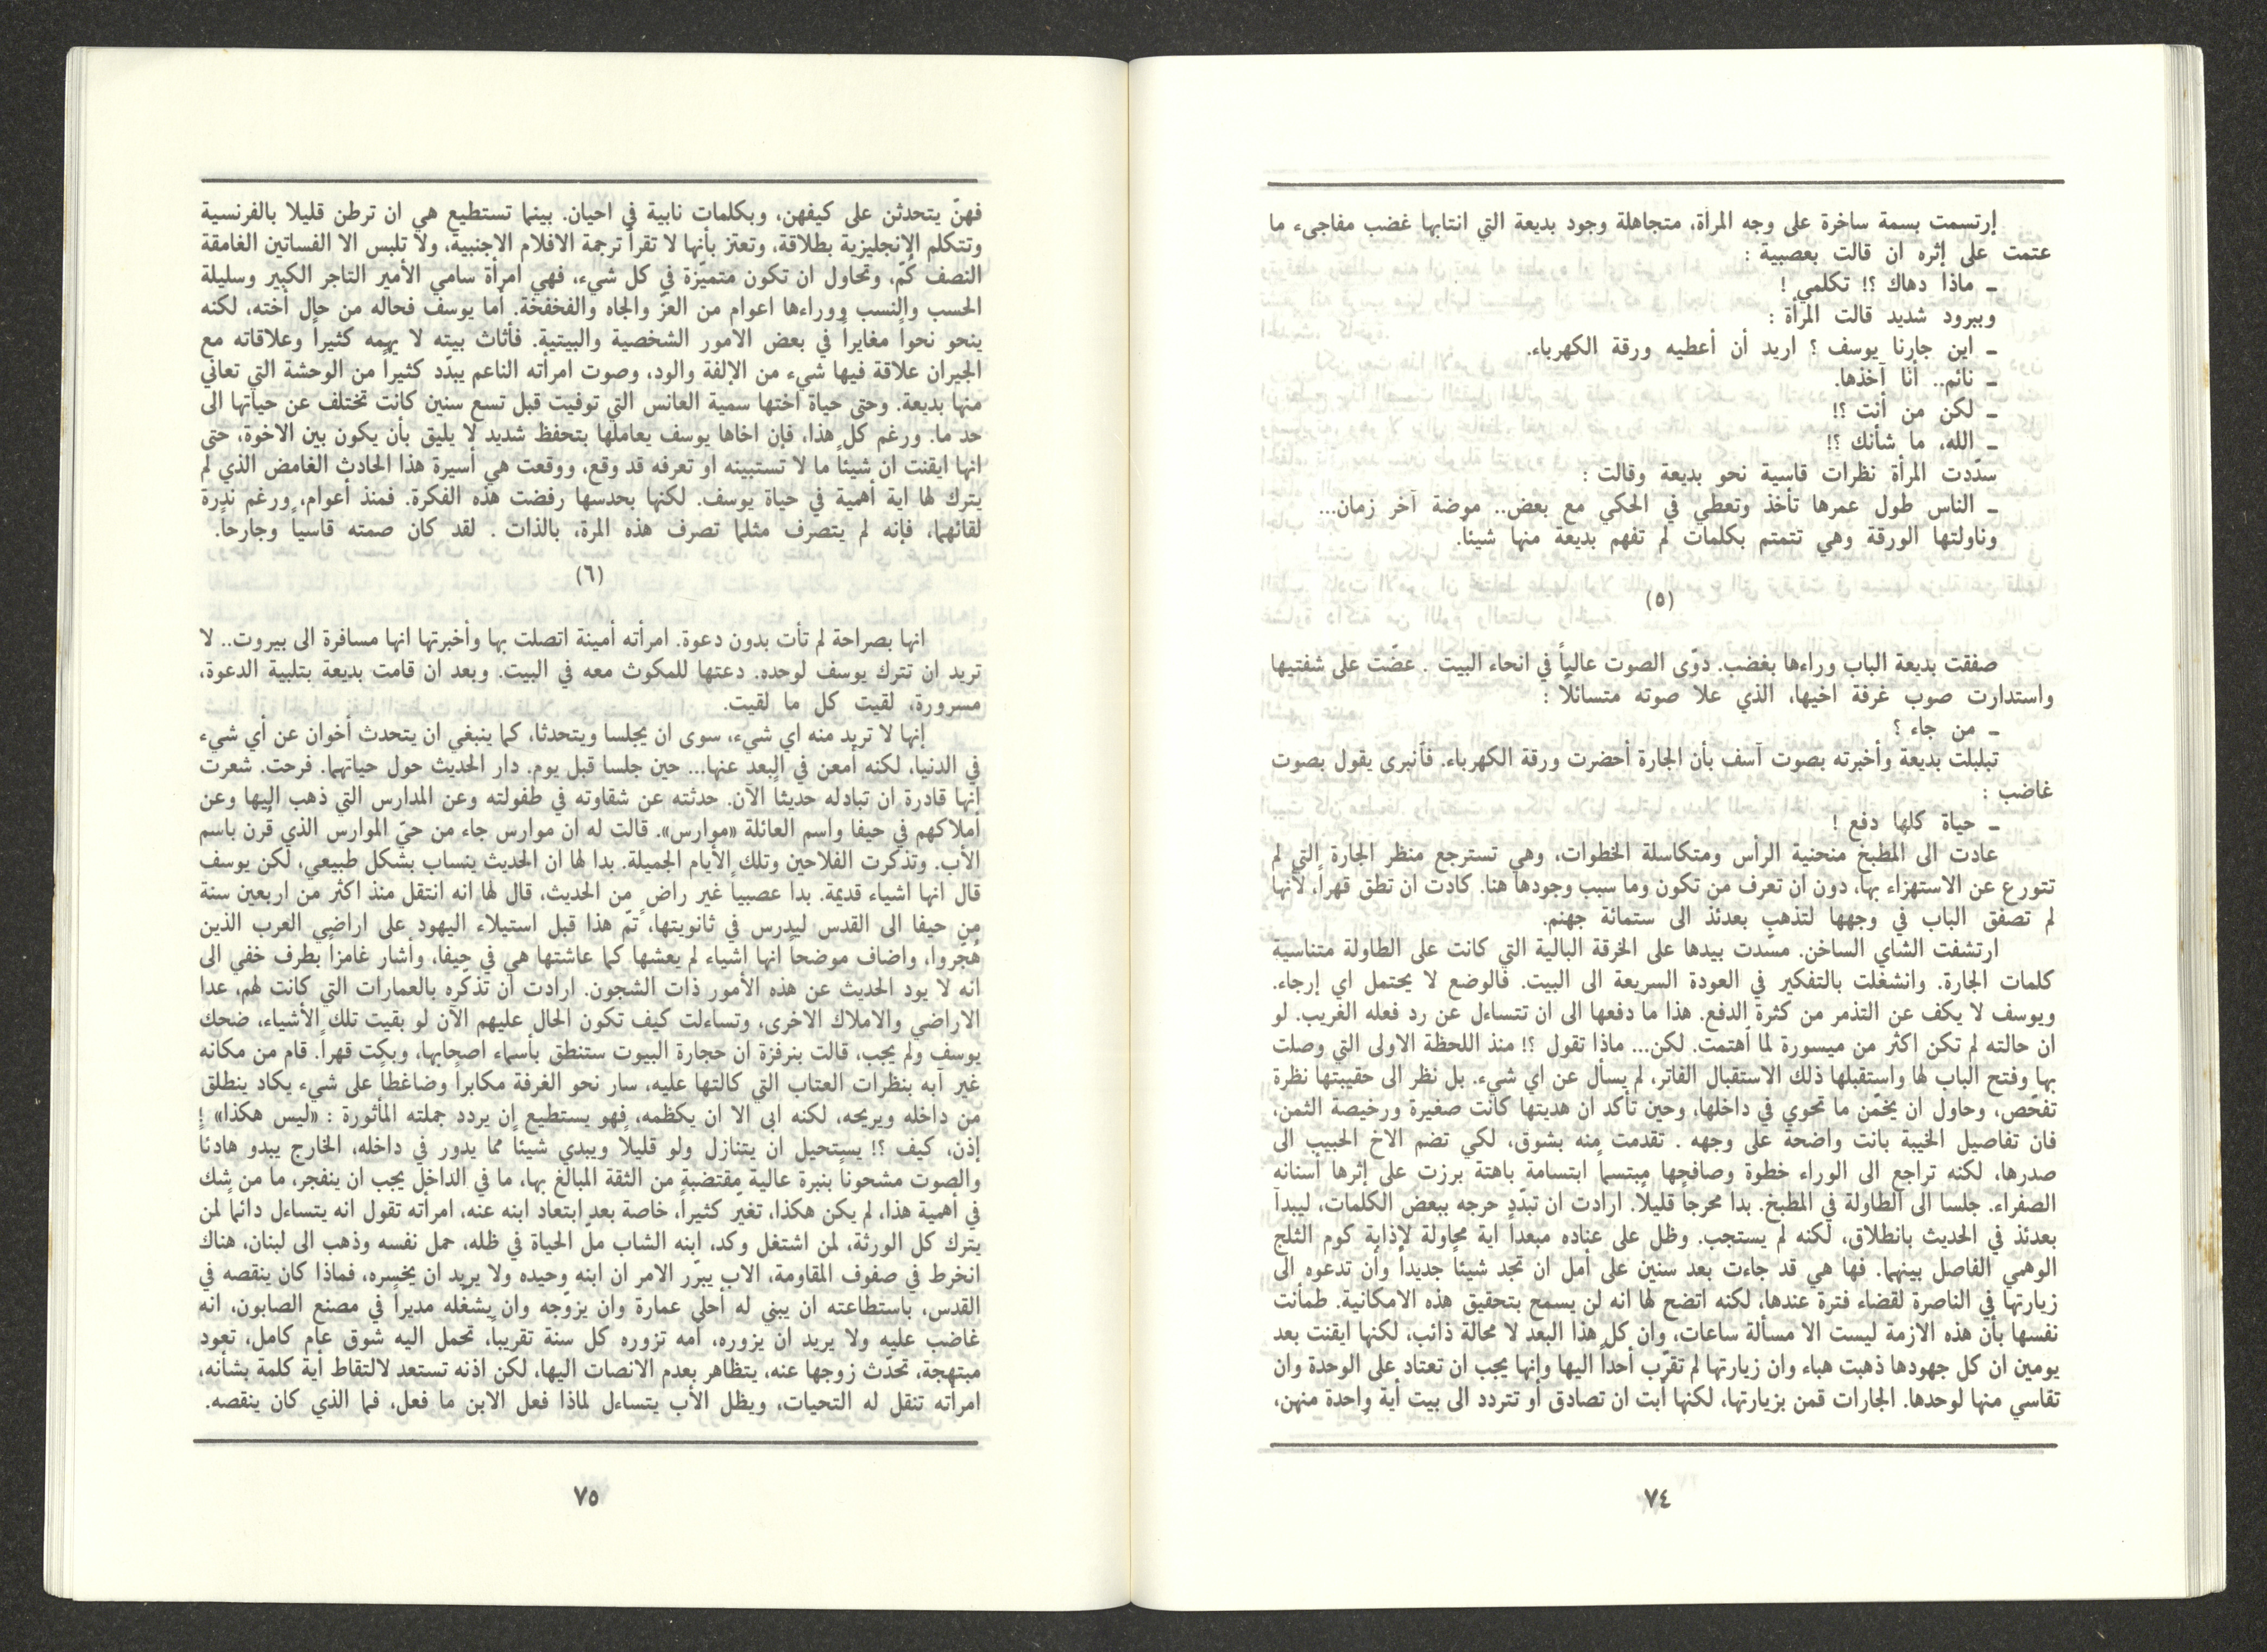 إرتسمت بسمة ساخرة على وجه المرأة، متجاهلة وجود بديعة التي انتابها غضب مفاجىء ما
عتمت على إثره ان قالت بعصبية :
ـ ماذا دهاك ؟! تكلمي !
وببرود شديد قالت المرأة :
ـ اين جارنا يوسف ؟ اريد أن أعطيه ورقة الكهرباء.
ـ نائم.. أنا آخذها.
ـ لكن من أنت ؟!
ـ الله، ما شأنك ؟!
سدّدت المرأة نظرات قاسية نحو بديعة وقالت :
ـ الناس طول عمرها تأخذ وتعطي في الحكي مع بعض.. موضة آخر زمان...
وناولتها الورقة وهي تتمتم بكلمات لم تفهم بديعة منها شيئاً.
(٥)
صفقت بديعة الباب وراءها بغضب. دوّى الصوت عالياً في انحاء البيت . عضّت على شفتيها
واستدارت صوب غرفة اخيها، الذي علا صوته متسائلاً :
ـ من جاء ؟
تبلبلت بديعة وأخبرته بصوت آسف بأن الجارة أحضرت ورقة الكهرباء. فأنبرى يقول بصوت
غاضب :
ـ حياة كلها دفع !
عادت الى المطبخ منحنية الرأس ومتكاسلة الخطوات، وهي تسترجع منظر الجارة التي لم
تتورع عن الاستهزاء بها، دون ان تعرف من تكون وما سبب وجودها هنا. كادت ان تطق قهراً، لأنها
لم تصفق الباب في وجهها لتذهب بعدئذ الى ستمائة جهنم.
ارتشفت الشاي الساخن. مسّدت بيدها على الخرقة البالية التي كانت على الطاولة متناسية
كلمات الجارة. وانشغلت بالتفكير في العودة السريعة الى البيت. فالوضع لا يحتمل اي إرجاء.
ويوسف لا يكف عن التذمر من كثرة الدفع. هذا ما دفعها الى ان تتساءل عن رد فعله الغريب. لو
ان حالته لم تكن اكثر من ميسورة لما أهتمت. لكن... ماذا تقول ؟! منذ اللحظة الاولى التي وصلت
بها وفتح الباب لها واستقبلها ذلك الاستقبال الفاتر، لم يسأل عن اي شيء. بل نظر الى حقيبتها نظرة
تفحّص، وحاول ان يخمّن ما تحوي في داخلها، وحين تأكد ان هديتها كانت صغيرة ورخيصة الثمن،
فان تفاصيل الخيبة بانت واضحة على وجهه . تقدمت منه بشوق، لكي تضم الاخ الحبيب الى
صدرها، لكنه تراجع الى الوراء خطوة وصافحها مبتسماً ابتسامة باهتة برزت على إثرها أسنانه
الصفراء. جلسا الى الطاولة في المطبخ. بدا محرجاً قليلاً. ارادت ان تبدّد حرجه ببعض الكلمات، ليبدأ
بعدئذ في الحديث بانطلاق، لكنه لم يستجب. وظل على عناده مبعداً اية محاولة لإذابة كوم الثلج
الوهمي الفاصل بينهما. فها هي قد جاءت بعد سنين على أمل ان تجد شيئاً جديداً وأن تدعوه الى
زيارتها في الناصرة لقضاء فترة عندها، لكنه اتضح لها انه لن يسمح بتحقيق هذه الامكانية. طمأنت
نفسها بأن هذه الازمة ليست الا مسألة ساعات، وان كل هذا البعد لا محالة ذائب، لكنها ايقنت بعد
يومين ان كل جهودها ذهبت هباء وان زيارتها لم تقرّب أحداً اليها وإنها يجب ان تعتاد على الوحدة وان
تقاسي منها لوحدها. الجارات قمن بزيارتها، لكنها أبت ان تصادق أو تتردد الى بيت أية واحدة منهن،
٧٤
فهنّ يتحدثن على كيفهن، وبكلمات نابية في احيان. بينما تستطيع هي ان ترطن قليلا بالفرنسية
وتتكلم الإنجليزية بطلاقة، وتعتز بأنها لا تقرأ ترجمة الافلام الاجنبية، ولا تلبس الا الفساتين الغامقة
النصف كُمّ، وتحاول ان تكون متميّزة في كل شيء، فهي امرأة سامي الأمير التاجر الكبير وسليلة
الحسب والنسب ووراءها اعوام من العزّ والجاه والفخفخة. أما يوسف فحاله من حال أخته، لكنه
ينحو نحواً مغايراً في بعض الامور الشخصية والبيتية. فأثاث بيته لا يهمه كثيراً وعلاقاته مع
الجيران علاقة فيها شيء من الإلفة والود، وصوت امرأته الناعم يبدّد كثيراً من الوحشة التي تعاني
منها بديعة. وحتى حياة اختها سمية العانس التي توفيت قبل تسع سنين كانت تختلف عن حياتها الى
حد ما. ورغم كل هذا، فإن اخاها يوسف يعاملها بتحفظ شديد لا يليق بأن يكون بين الاخوة، حتى
انها ايقنت ان شيئاً ما لا تستبينه او تعرفه قد وقع، ووقعت هي أسيرة هذا الحادث الغامض الذي لم
يترك لها اية أهمية في حياة يوسف. لكنها بحدسها رفضت هذه الفكرة. فمنذ أعوام، ورغم ندرة
لقائهما، فإنه لم يتصرف مثلما تصرف هذه المرة، بالذات . لقد كان صمته قاسياً وجارحاً.
(٦)
انها بصراحة لم تأت بدون دعوة. امرأته أمينة اتصلت بها وأخبرتها انها مسافرة الى بيروت.. لا
تريد ان تترك يوسف لوحده. دعتها للمكوث معه في البيت. وبعد ان قامت بديعة بتلبية الدعوة،
مسرورة، لقيت كل ما لقيت.
إنها لا تريد منه اي شيء، سوى ان يجلسا ويتحدثا، كما ينبغي ان يتحدث أخوان عن أي شيء
في الدنيا، لكنه أمعن في البعد عنها... حين جلسا قبل يوم. دار الحديث حول حياتهما. فرحت. شعرت
انها قادرة ان تبادله حديثاً الآن. حدثته عن شقاوته في طفولته وعن المدارس التي ذهب اليها وعن
أملاكهم في حيفا واسم العائلة «موارس». قالت له ان موارس جاء من حيّ الموارس الذي قرن باسم
الأب. وتذكرت الفلاحين وتلك الأيام الجميلة. بدا لها ان الحديث ينساب بشكل طبيعي، لكن يوسف
قال انها اشياء قديمة. بدا عصبياً غير راضٍ من الحديث، قال لها انه انتقل منذ اكثر من اربعين سنة
من حيفا الى القدس ليدرس في ثانويتها، تمّ هذا قبل استيلاء اليهود على اراضي العرب الذين
هُجّروا، واضاف موضحاً انها اشياء لم يعشها كما عاشتها هي في حيفا، وأشار غامزاً بطرف خفي الى
انه لا يود الحديث عن هذه الأمور ذات الشجون. ارادت ان تذكّره بالعمارات التي كانت لهم، عدا
الاراضي والاملاك الاخرى، وتساءلت كيف تكون الحال عليهم الآن لو بقيت تلك الأشياء، ضحك
يوسف ولم يجب، قالت بنرفزة ان حجارة البيوت ستنطق بأسماء اصحابها، وبكت قهراً. قام من مكانه
غير آبه بنظرات العتاب التي كالتها عليه، سار نحو الغرفة مكابراً وضاغطاً على شيء يكاد ينطلق
من داخله ويريحه، لكنه ابى الا ان يكظمه، فهو يستطيع ان يردد جملته المأثورة : «ليس هكذا» !
إذن، كيف ؟! يستحيل ان يتنازل ولو قليلاً ويبدي شيئاً مما يدور في داخله، الخارج يبدو هادئاً
والصوت مشحوناً بنبرة عالية مقتضبة من الثقة المبالغ بها، ما في الداخل يجب ان ينفجر، ما من شك
في أهمية هذا، لم يكن هكذا، تغيّر كثيراً، خاصة بعد ابتعاد ابنه عنه، امرأته تقول انه يتساءل دائماً لمن
يترك كل الورثة، لمن اشتغل وكد، ابنه الشاب ملّ الحياة في ظله، حمل نفسه وذهب الى لبنان، هناك
انخرط في صفوف المقاومة، الاب يبرّر الامر ان ابنه وحيده ولا يريد ان يخسره، فماذا كان ينقصه في
القدس، باستطاعته ان يبني له أحلى عمارة وان يزوّجه وان يشغله مديراً في مصنع الصابون، انه
غاضب عليه ولا يريد ان يزوره، أمه تزوره كل سنة تقريباً، تحمل اليه شوق عام كامل، تعود
مبتهجة، تحدّث زوجها عنه، يتظاهر بعدم الانصات اليها، لكن اذنه تستعد لالتقاط أية كلمة بشأنه،
امرأته تنقل له التحيات، ويظل الأب يتساءل لماذا فعل الابن ما فعل، فما الذي كان ينقصه.
٧٥